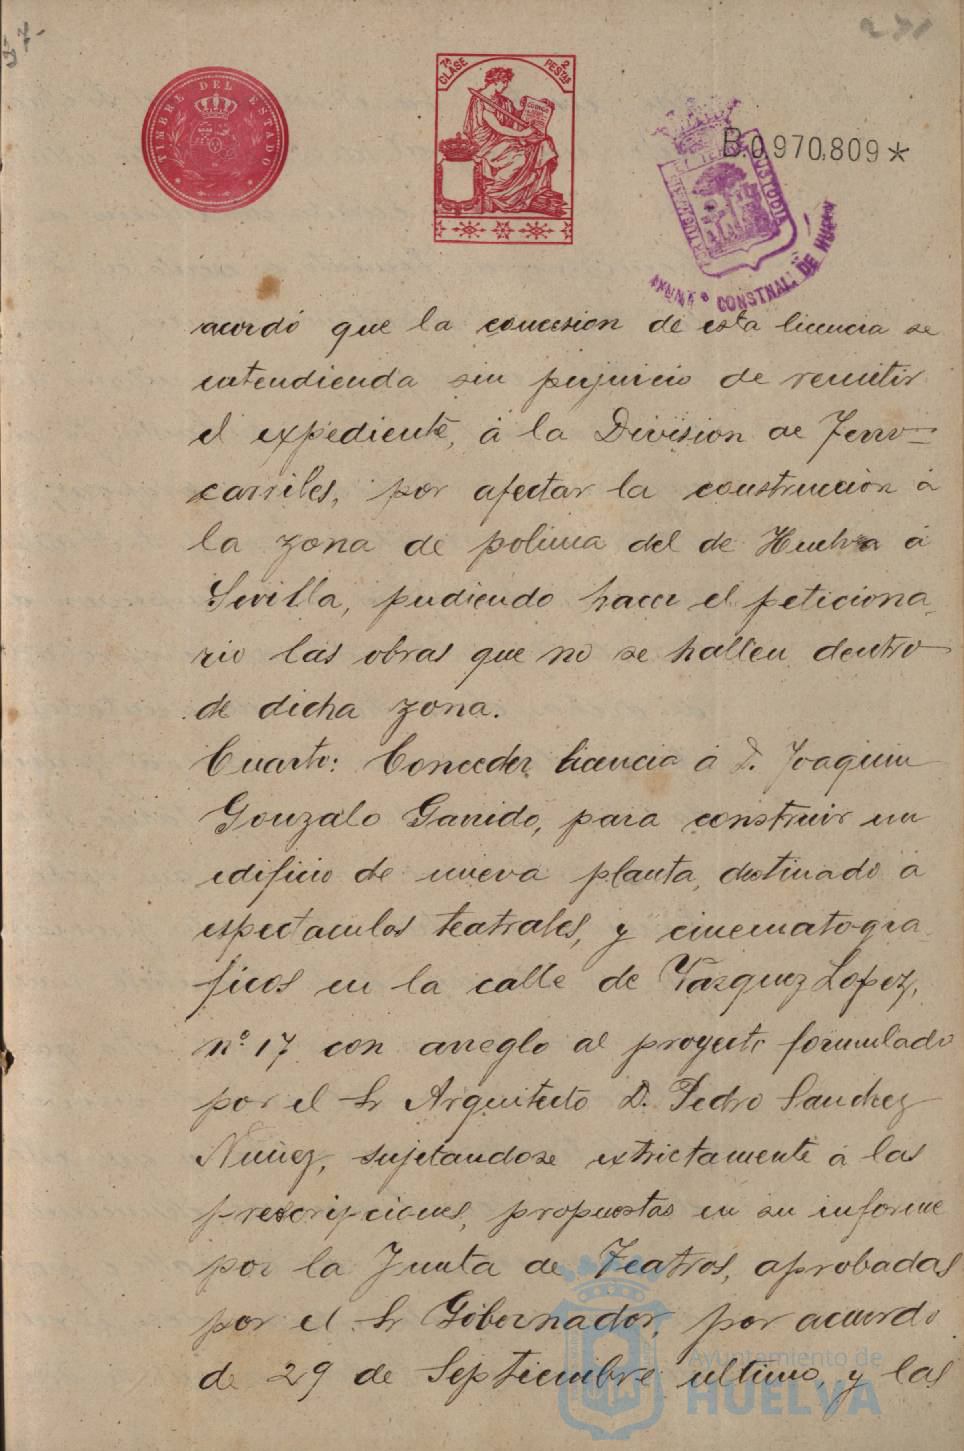 271
TIMBRE DEL ESTADO
7ª CLASE 2 PESTAS
B.0,970,809*
PORTUS MARIS ET TERRÆ CUSTODIA
AYUNTº CONSTNAL. DE HUELVA
acordó que la concesion de esta licencia se
entendienda sin perjuicio de remitir
el expediente, á la Division de Ferro=
carriles, por afectar la construccion á
la zona de policia del de Huelva á
Sevilla, pudiendo hacer el peticiona-
rio las obras que no se hallen dentro
de dicha zona.
Cuarto: Conceder licencia á D. Joaquin
Gonzalo Garrido, para construir un
edificio de nueva planta, destinado á
espectaculos teatrales, y cinematogra-
ficos en la calle de Vazquez Lopez,
nº 17 con arreglo al proyecto formulado
por el Sr Arquitecto D. Pedro Sanchez
Nuñez, sujetandose extrictamente á las
prescripciones, propuestas en su informe
por la Junta de Teatros, aprobadas
por el Sr Gobernador, por acuerdo
de 29 de Septiembre ultimo, y las
Ayuntamiento de
HUELVA